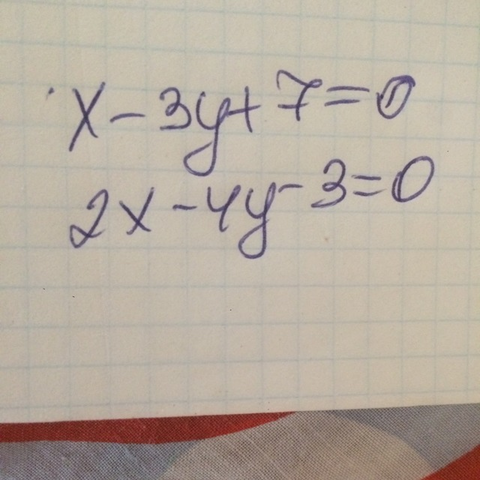 x - 3y + 7 = 0
2x - 4y - 3 = 0